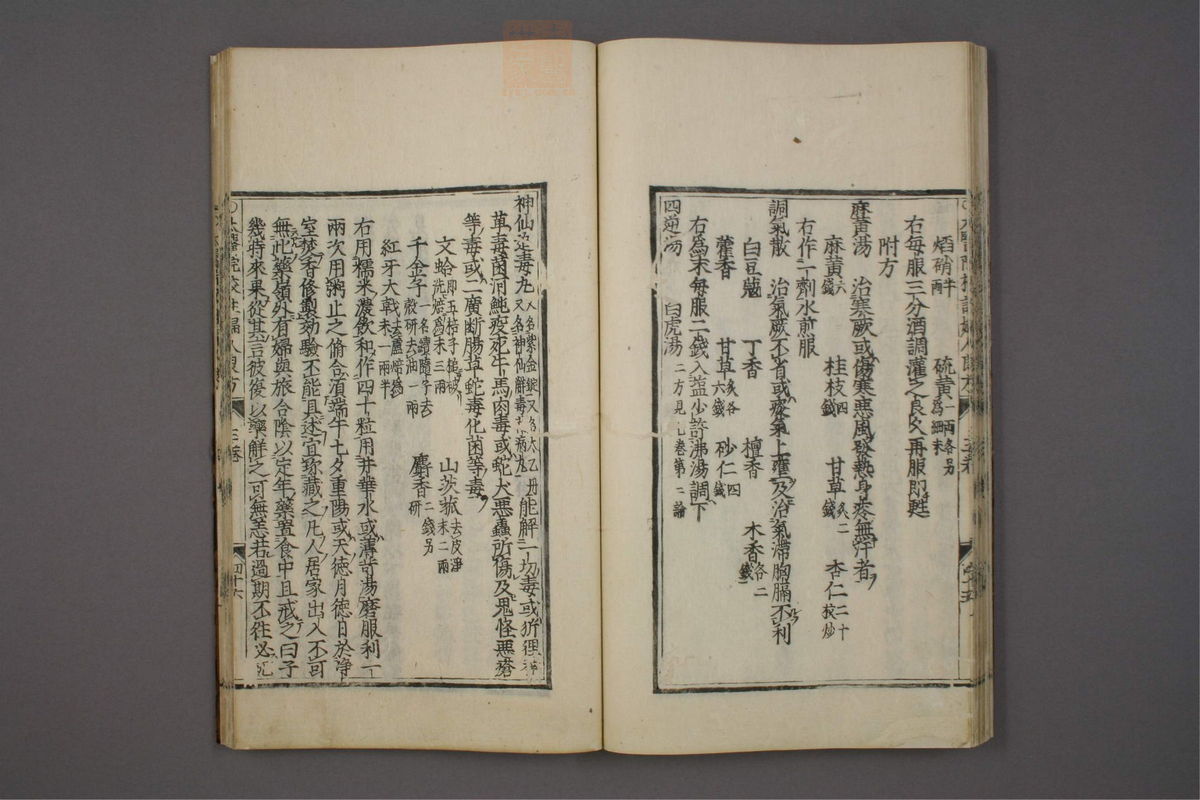 焰硝半兩 硫黃一兩各另爲細末
右每服三分酒調灌之良久再服即甦
附方
麻黃湯 治寒厥或傷寒惡風發熱身疼無汗者
麻黃六錢 桂枝四錢 甘草炙二錢 杏仁二十枚炒
右作一劑水煎服
調氣散 治氣厥不省或痰氣上壅及治氣滯胸膈不利
白豆蔲 丁香 檀香 木香各二錢
藿香 甘草炙各六錢 砂仁四錢
右爲末每服二錢入盐少許沸湯調下
四逆湯 白虎湯二方見卷第二論
神仙追毒丸又名紫金錠又名太乙丹又名神仙解毒萬病丸能解一切毒或狐狸
草毒菌河魨疫死牛馬肉毒或蛇犬惡蟲所傷及鬼怪惡瘡
等毒或二廣斷腸草蛇毒化菌等毒
文蛤即五棓子槌破洗焙爲末三兩 山茨菰去皮淨末二兩
千金子一名續隨子去殼研去油一兩 麝香二錢另研
紅牙大戟去蘆焙爲末一兩半
右用糯米濃飲和作四十粒用井華水或薄荷湯磨服利一
兩次用粥止之脩合須端午七夕重陽或天德月德日於淨
室焚香修製効驗不能具述宜珍藏之凡人居家出入不可
無此藥嶺外有婦與旅合陰以定年藥置食中且戒之曰子
幾時來果從其言彼復以藥解之可無恙若過期不往必死
○太醫院校註婦人良方 三卷 四十六